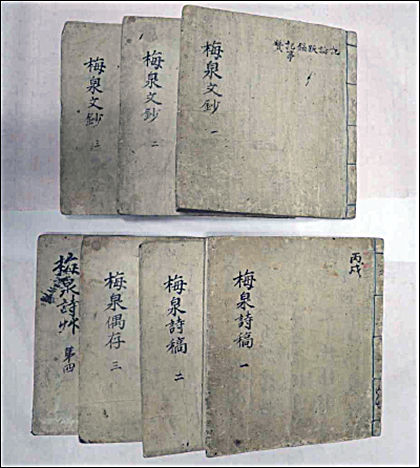 梅泉文鈔 一
梅泉文鈔 二
梅泉文鈔 三
丙戌
梅泉詩稿 一
梅泉詩稿 二
梅泉偶存 三
梅泉詩艸 第四